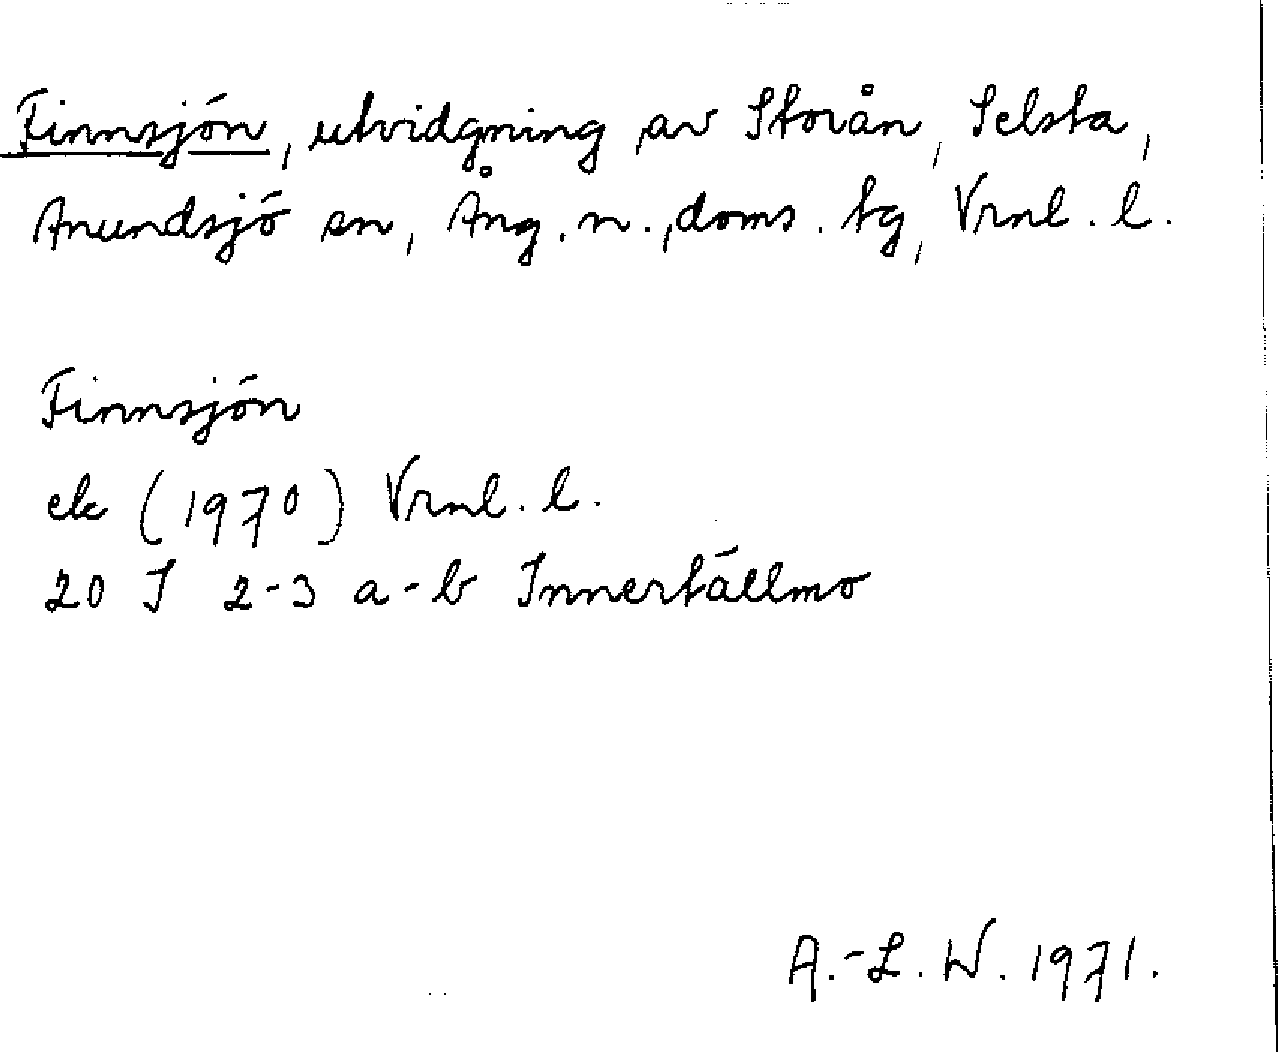 Finnsjön, utvidgning av Storån, Selsta,
Anundsjö sn, Ång. n., doms. tg, Vrnl. l.
Finnsjön
ek (1970) Vrnl. l.
20 I 2-3 a-b Innertällmo
A.-L. W. 1971.